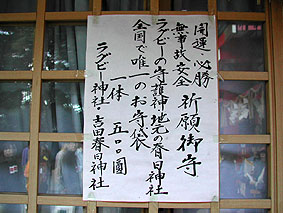 開運・必勝
無事故安全
祈願御守
ラグビーの守護神地元の春日神社
全国で唯一のお守袋
一体 五〇〇圓
ラグビー神社・吉田春日神社